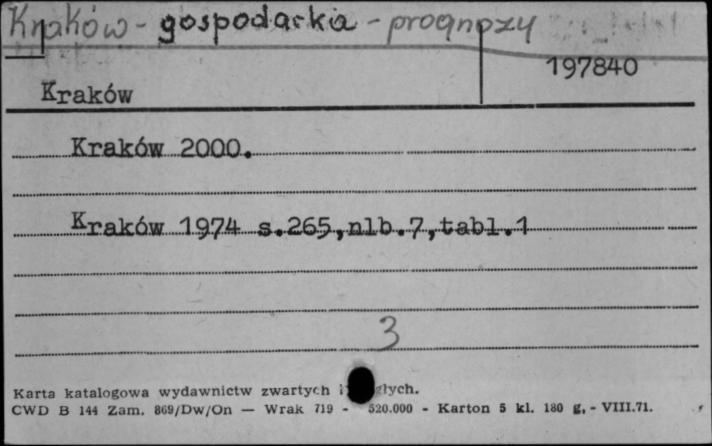 Kraków - gospodarka - prognozy
197840
Kraków
Kraków 2000.
Kraków 1974 s.265,nlb.7,tabl.1
3
Karta katalogowa wydawnictw zwartych i głych.
CWD B 144 Zam. 869/Dw/On — Wrak 719 - 520.000 - Karton 5 kl. 180 g. - VIII.71.